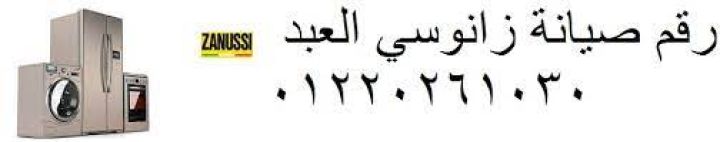 رقم صيانة زانوسي العبد
ZANUSSI
٠١٢٢٠٢٦١٠٣٠